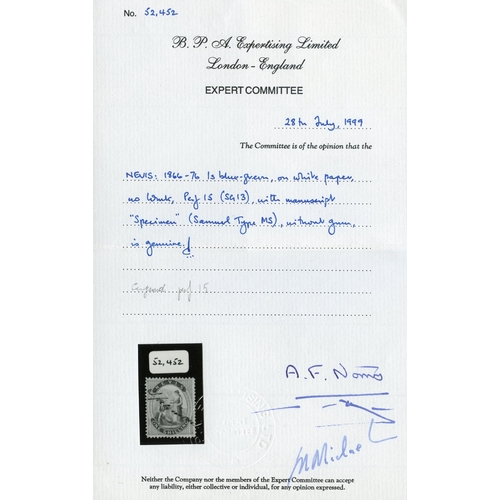 No. 52,452
B. P. A. Expertising Limited
London - England
EXPERT COMMITTEE
28th July, 1999
The Committee is of the opinion that the
NEVIS: 1866-76 1s blue-green, on white paper,
no wmk, Perf 15 (SG13), with manuscript
"Specimen" (Samuel Type MS), without gum,
is genuine.
perf 15
52,452
NEVIS
ONE SHILLING
A. F. Norris
Michael
Neither the Company nor the members of the Expert Committee can accept
any liability, either collective or individual, for any opinion expressed.